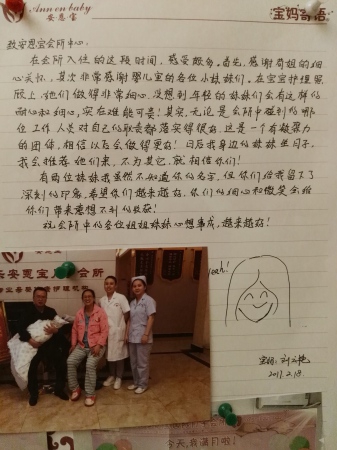 Ann on baby
安恩宝
宝妈寄语
致安恩宝会所中心:
在会所入住的这段时间,感受颇多,首先,感谢
细心关怀,其次非常感谢婴儿室的各位小妹妹们,在宝宝护理照
顾上,他们做得非常细心,没想到年轻的妹妹们会有这样的
耐心和细心,实在难能可贵!其实,无论是会所中碰到的哪
位工作人员对自己的职责都落实得很好,这是一个有凝聚力
的团体,相信以后会做得更好!日后我身边的妹妹坐月子,
我会推荐他们来,不为其它,就相信你们!
有两位妹妹我虽然不知道你的名字,但你们给我留下了
深刻的印象,希望你们越来越好,你们的细心和微笑会给
你们带来意想不到的收获!
祝会所中心各位姐姐妹妹心想事成,越来越好!
安恩宝 会所
yeah!
宝妈:刘
2017.2.18.
今天,我满月啦!